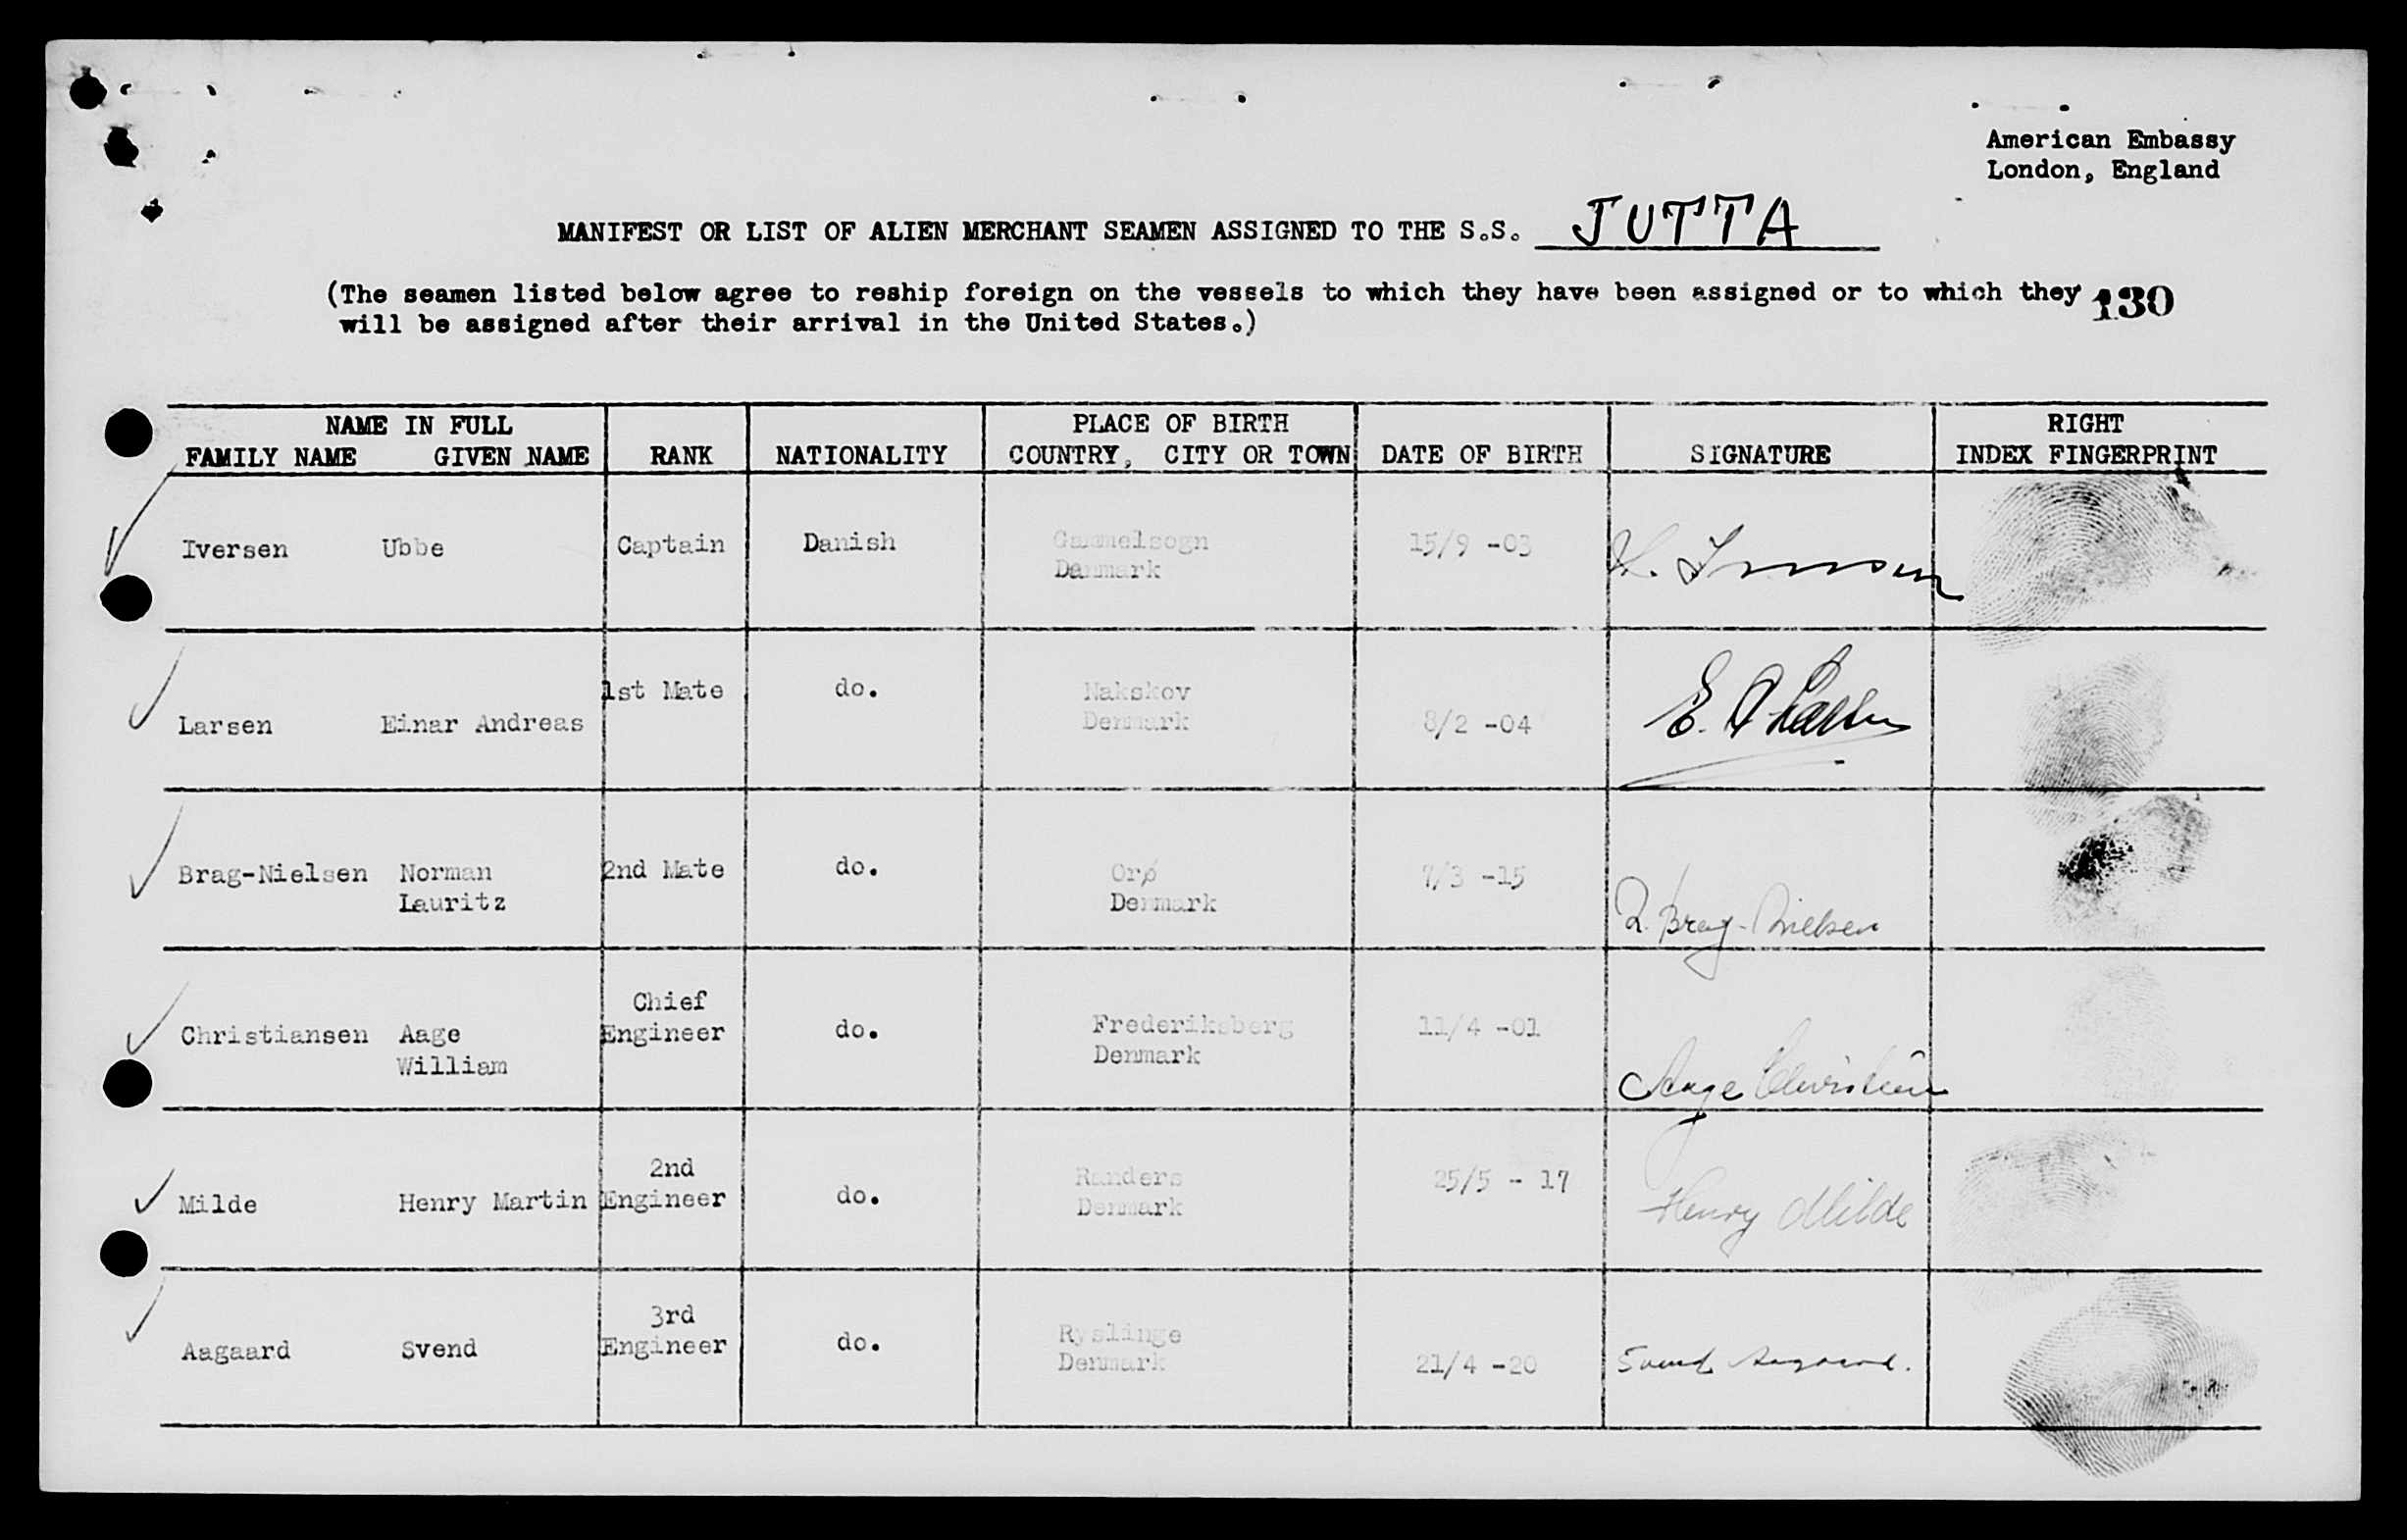 American Embassy
London, England
MANIFEST OR LIST OF ALIEN MERCHANT SEAMEN ASSIGNED TO THE S.S. JUTTA
(The seamen listed below agree to reship foreign on the vessels to which they have been assigned or to which they 130
will be assigned after their arrival in the United States.)
NAME IN FULL PLACE OF BIRTH RIGHT
FAMILY NAME GIVEN NAME RANK NATIONALITY COUNTRY, CITY OR TOWN DATE OF BIRTH SIGNATURE INDEX FINGERPRINT
Iversen Ubbe Captain Danish Gammelsogn 15/9 -03 Iversen
Danmark
1st Mate do. Nakskov
Larsen Einar Andreas Denmark 8/2 -04 E. A Larsen
Brag-Nielsen Norman 2nd Mate do. Orø 7/3 -15
Lauritz Denmark Brag-Nielsen
Chief
Christiansen Aage Engineer do. Frederiksberg 11/4 -01
William Denmark Aage Christiansen
2nd Randers 25/5 - 17
Milde Henry Martin Engineer do. Denmark Henry Milde
3rd
Aagaard Svend Engineer do. Ryslinge
Denmark 21/4 -20 Svend Aagaard.